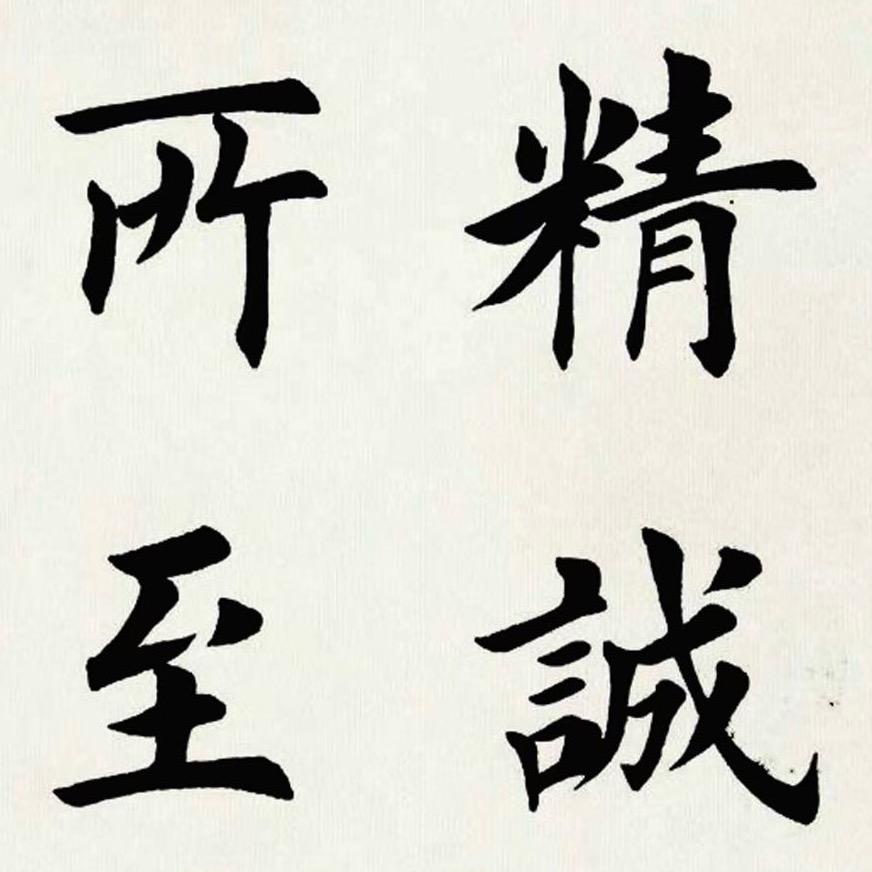 精誠
所至